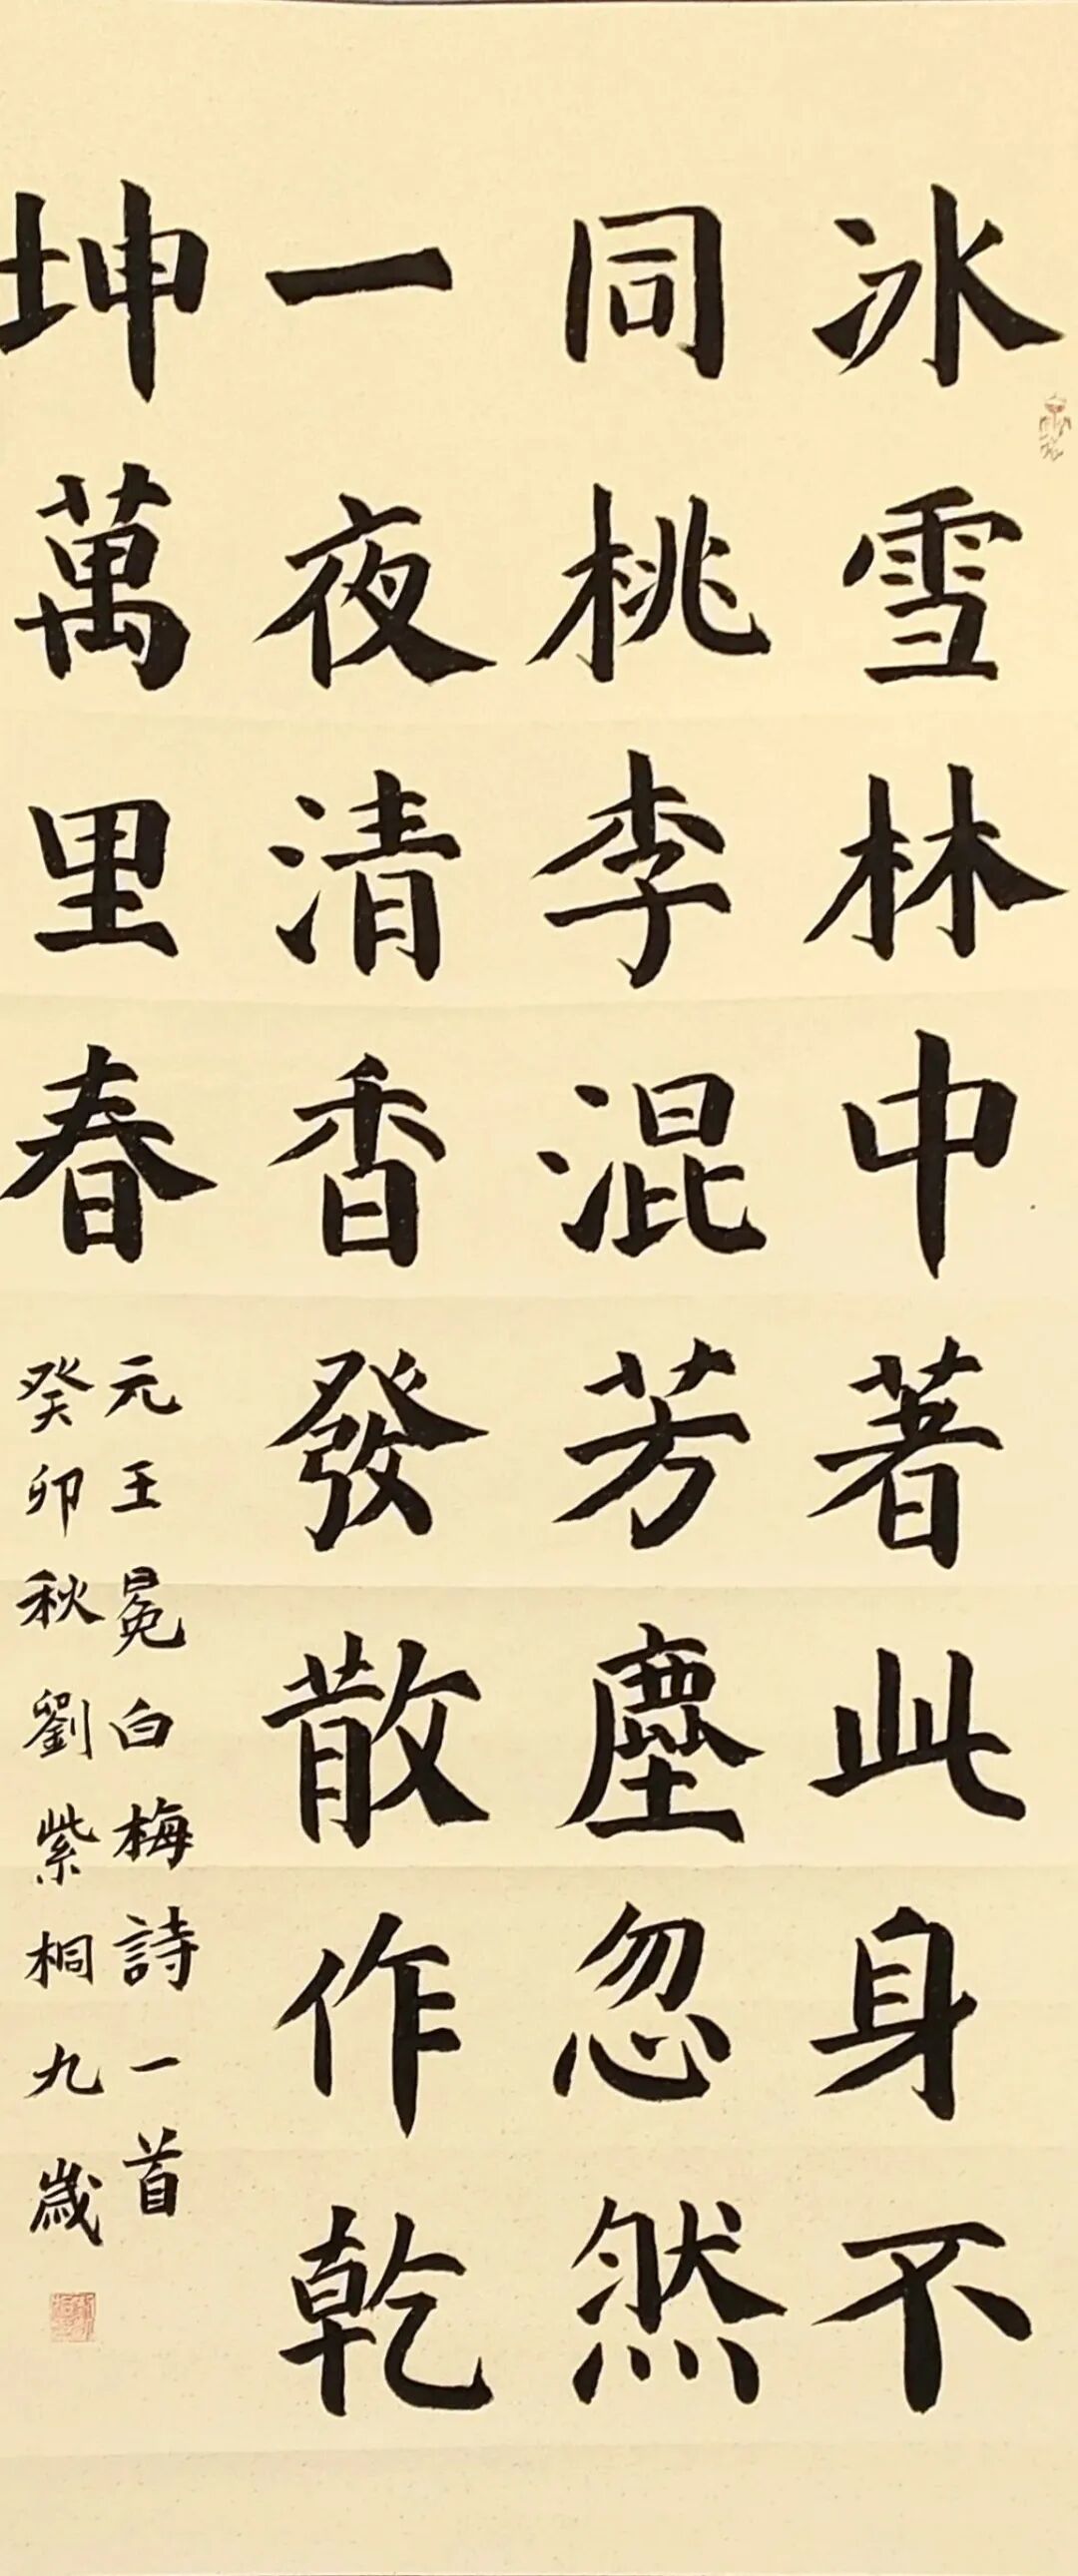 冰雪林中著此身不
同桃李混芳塵忽然
一夜清香發散作乾
坤萬里春
元王冕白梅詩一首
癸卯秋劉紫桐九歲